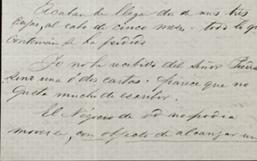 Acaban de llegar dos de sus tres
cajas, al cabo de cinco meses. todo lo que
contenian se ha perdido
Yo no he recibido del Señor
sino una ó dos cartas. parece que no
gusta mucho de escribir.
El Negocio de vd no podia
moverse, con objeto de alcanzar un